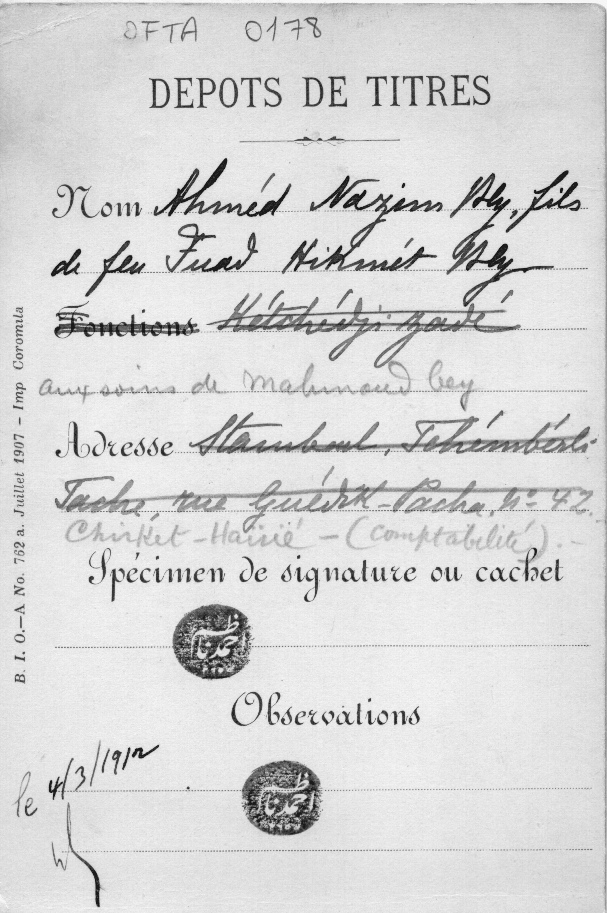 OFTA 0178
DEPOTS DE TITRES
Nom Ahméd Nazim Bey, fils
de feu Fuad Hikmét Bey
Fonctions Kétchédji zadé
aux soins de Mahmoud bey
Adresse Stamboul, Tchémbérli
Tache, rue Guédik-Pacha, No 42.
Chirket-Haïrié - (Comptabilité). -
Spécimen de signature ou cachet
احمد ناظم
Observations
احمد ناظم
le 4/3/1912
B. I. O.—A No. 762 a. Juillet 1907 - Imp Coromila